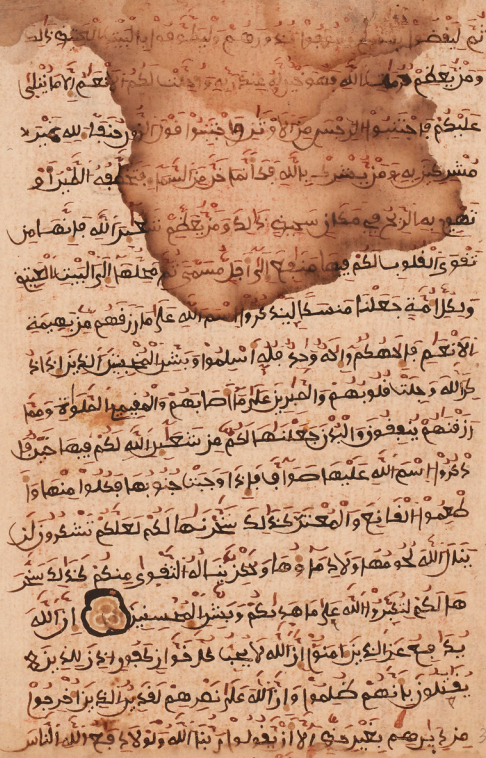 ثم ليقضوا تفثهم وليوفوا نذورهم وليطوفوا بالبيت العتيق ذلك
ومن يعظم حرمت الله فهو خير له عند ربه وأحلت لكم الانعم الا ما يتلى
عليكم فاجتنبوا الرجس من الاوثن واجتنبوا قول الزور حنفاء لله غير
مشركين به ومن يشرك بالله فكأنما خر من السماء فتخطفه الطير أو
تهوي به الريح في مكان سحيق ذلك ومن يعظم شعير الله فإنها من
تقوى القلوب لكم فيها منفع إلى أجل مسمى ثم محلها إلى البيت العتيق
ولكل أمة جعلنا منسكا ليذكروا اسم الله على ما رزقهم من بهيمة
الانعم فإلهكم إله وحد فله أسلموا وبشر المخبتين الذين إذا ذ
كر الله وجلت قلوبهم والصبرين على ما أصابهم والمقيمي الصلوة ومما
رزقنهم ينفقون والبدن جعلنها لكم من شعير الله لكم فيها خير فا
ذكروا اسم الله عليها صواف فإذا وجبت جنوبها فكلوا منها وا
طعموا القانع والمعتر كذلك سخرنها لكم لعلكم تشكرون لن
ينال الله لحومها ولا دماؤها ولكن يناله التقوى منكم كذلك سخر
ها لكم لتكبروا الله على ما هديكم وبشر المحسنين ان الله
يدفع عن الذين امنوا ان الله لا يحب كل خوان كفور اذن للذين
يقتلون بأنهم ظلموا وان الله على نصرهم لقدير الذين اخرجوا
من ديرهم بغير حق الا ان يقولوا ربنا الله ولولا دفع الله الناس